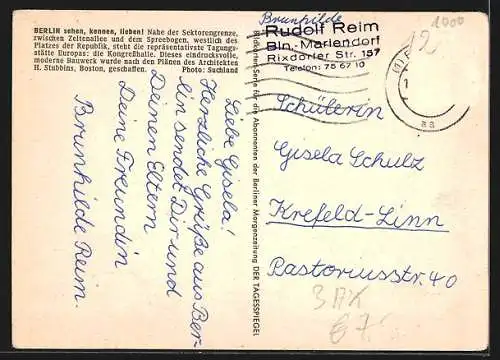 BERLIN sehen, kennen, lieben! Nahe der Sektorengrenze,
zwischen Zeltenallee und dem Spreebogen, westlich des
Platzes der Republik, steht die repräsentativste Tagungs-
stätte Europas: die Kongreßhalle. Dieses eindrucksvolle,
moderne Bauwerk wurde nach den Plänen des Architekten
H. Stubbins, Boston, geschaffen. Photo: Suchland
Liebe Gisela!
Herzliche Grüße aus Ber-
lin sendet Dir und
Deinen Eltern
Deine Freundin
Brunhilde Reim.
Bildkarten-Serie für die Abonnenten der Berliner Morgenzeitung DER TAGESSPIEGEL
Brunhilde
Rudolf Reim
Bln.-Mariendorf
Rixdorfer Str. 157
Telefon: 75 67 10
1000
12
(1)
aa
Schülerin
Gisela Schulz
Krefeld-Linn
Pastoriusstr. 40